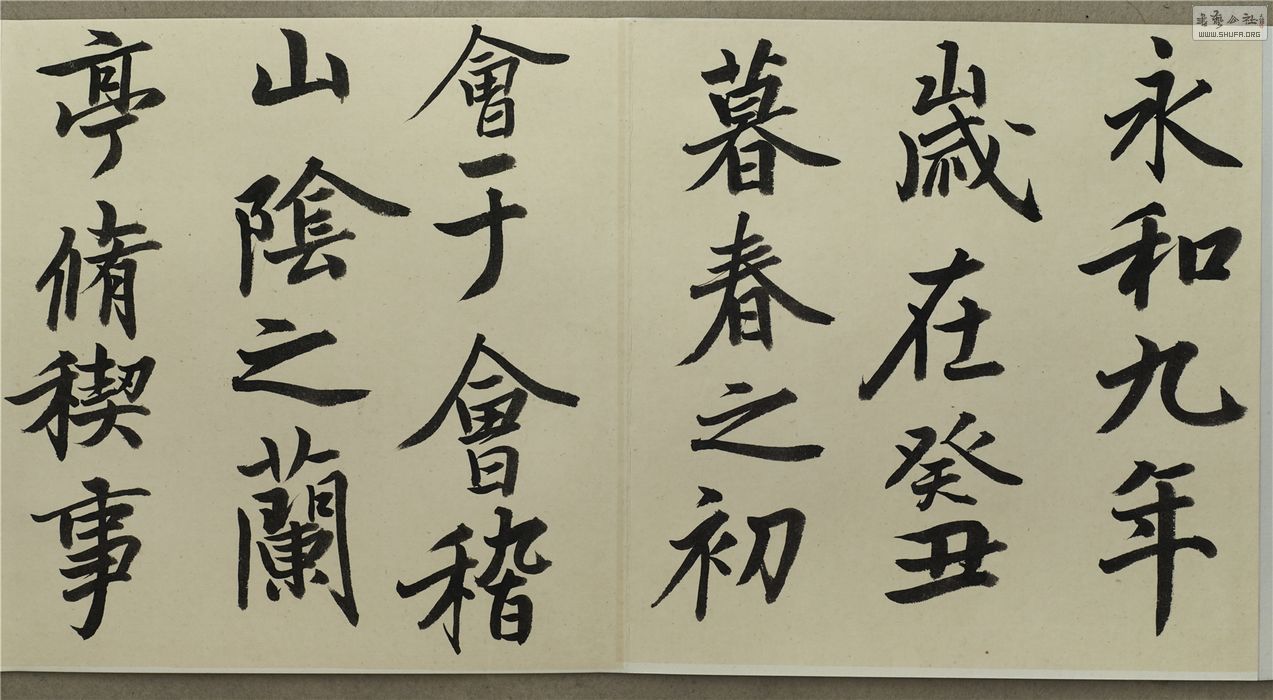 永和九年
歲在癸丑
暮春之初
會于會稽
山陰之蘭
亭脩稧事
書藝公社
WWW.SHUFA.ORG